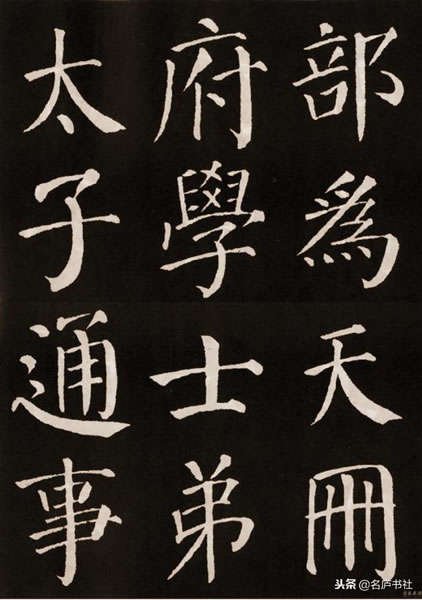 部為天冊
府學士弟
太子通事
头条 @名庐书社